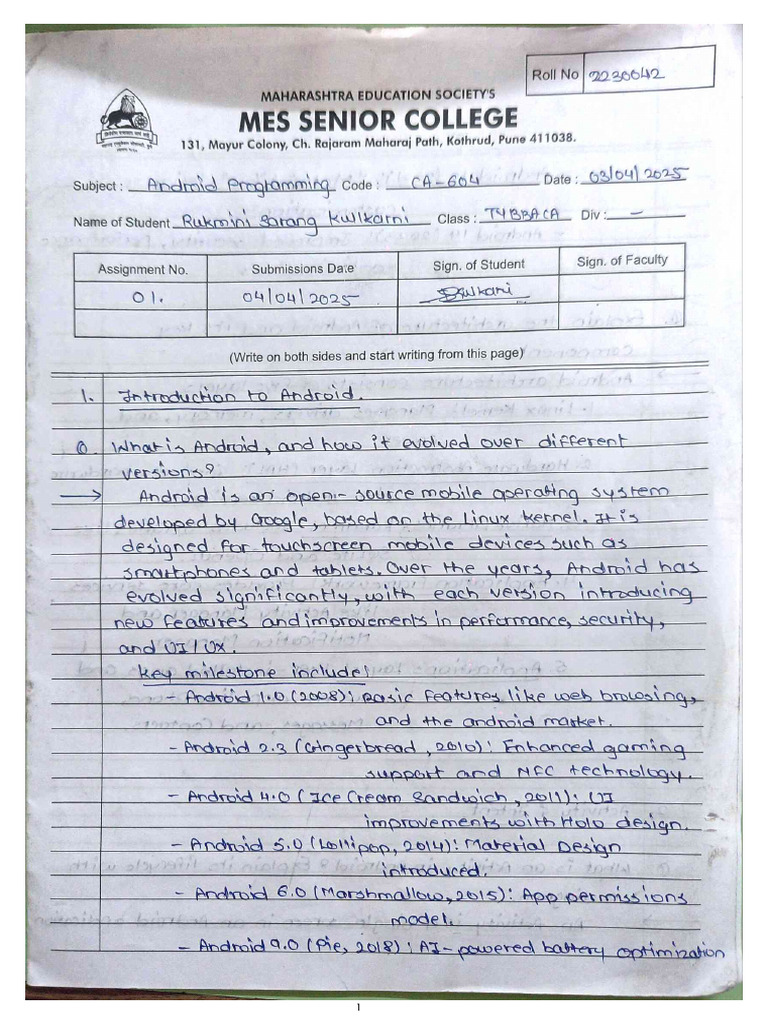 Roll No 2230642
MAHARASHTRA EDUCATION SOCIETY'S
MES SENIOR COLLEGE
131, Mayur Colony, Ch. Rajaram Maharaj Path, Kothrud, Pune 411038.
Subject : Android Programming Code : CA-604 Date : 03/04/2025
Name of Student Rukmini Sarang Kulkarni Class : TYBBACA Div : -
Assignment No. Submissions Date Sign. of Student Sign. of Faculty
01. 04/04/2025
(Write on both sides and start writing from this page)
1. Introduction to Android.
Q. What is Android, and how it evolved over different
versions?
→ Android is an open-source mobile operating system
developed by Google, based on the Linux kernel. It is
designed for touchscreen mobile devices such as
smartphones and tablets. Over the years, Android has
evolved significantly, with each version introducing
new features and improvements in performance, security,
and UI/UX.
Key milestone include:
- Android 1.0 (2008): Basic features like web browsing,
and the android market.
- Android 2.3 (Gingerbread, 2010): Enhanced gaming
support and NFC technology.
- Android 4.0 (Ice Cream Sandwich, 2011): UI
improvements with Holo design.
- Android 5.0 (Lollipop, 2014): Material Design
introduced.
- Android 6.0 (Marshmallow, 2015): App permissions
model.
- Android 9.0 (Pie, 2018): AI-powered battery optimization
1